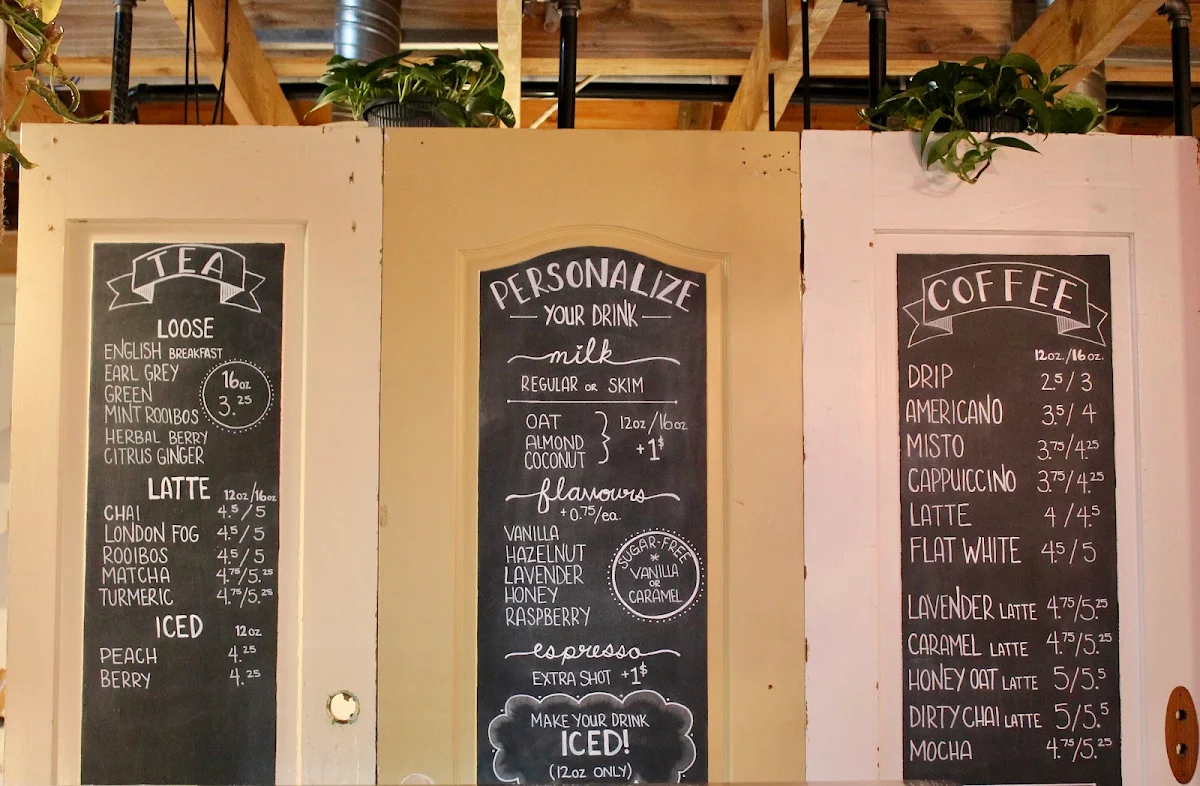 TEA
LOOSE
ENGLISH BREAKFAST
EARL GREY
GREEN
MINT ROOIBOS
HERBAL BERRY
CITRUS GINGER
16oz
3.25
LATTE 12oz/16oz
CHAI 4.5/5
LONDON FOG 4.5/5
ROOIBOS 4.5/5
MATCHA 4.75/5.25
TURMERIC 4.75/5.25
ICED 12oz
PEACH 4.25
BERRY 4.25
PERSONALIZE
YOUR DRINK
milk
REGULAR OR SKIM
OAT
ALMOND
COCONUT
12oz/16oz
+1$
flavours
+0.75/ea.
VANILLA
HAZELNUT
LAVENDER
HONEY
RASPBERRY
SUGAR-FREE
*
VANILLA
OR
CARAMEL
espresso
EXTRA SHOT +1$
MAKE YOUR DRINK
ICED!
(12oz ONLY)
COFFEE
12oz./16oz.
DRIP 2.5/3
AMERICANO 3.5/4
MISTO 3.75/4.25
CAPPUCCINO 3.75/4.25
LATTE 4/4.5
FLAT WHITE 4.5/5
LAVENDER LATTE 4.75/5.25
CARAMEL LATTE 4.75/5.25
HONEY OAT LATTE 5/5.5
DIRTY CHAI LATTE 5/5.5
MOCHA 4.75/5.25